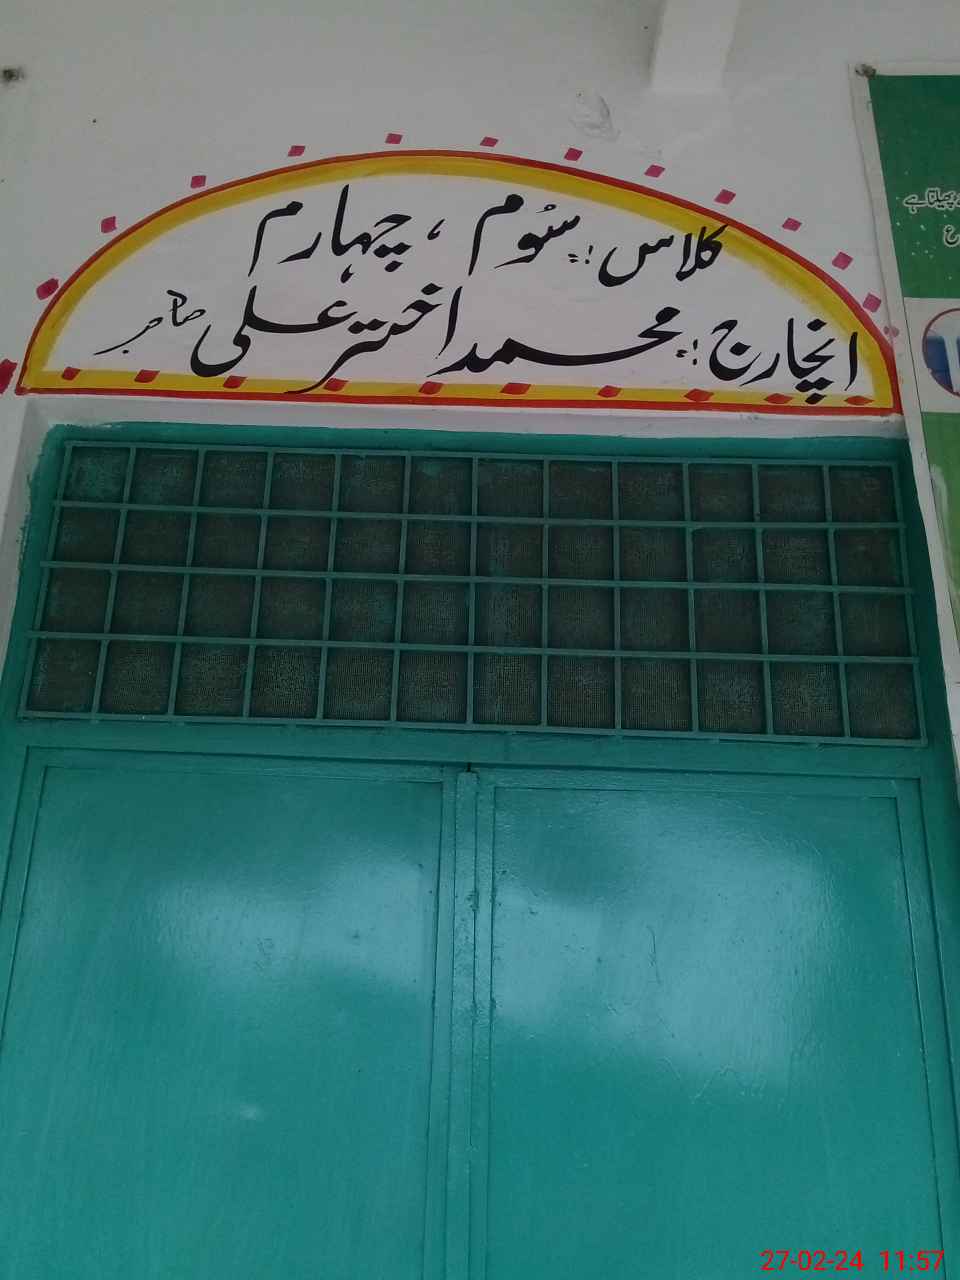 کلاس :۔ سُوم ، چہارم
انچارج :۔ محمد اختر علی صاحب
پھیلتا ہے
27-02-24 11:57